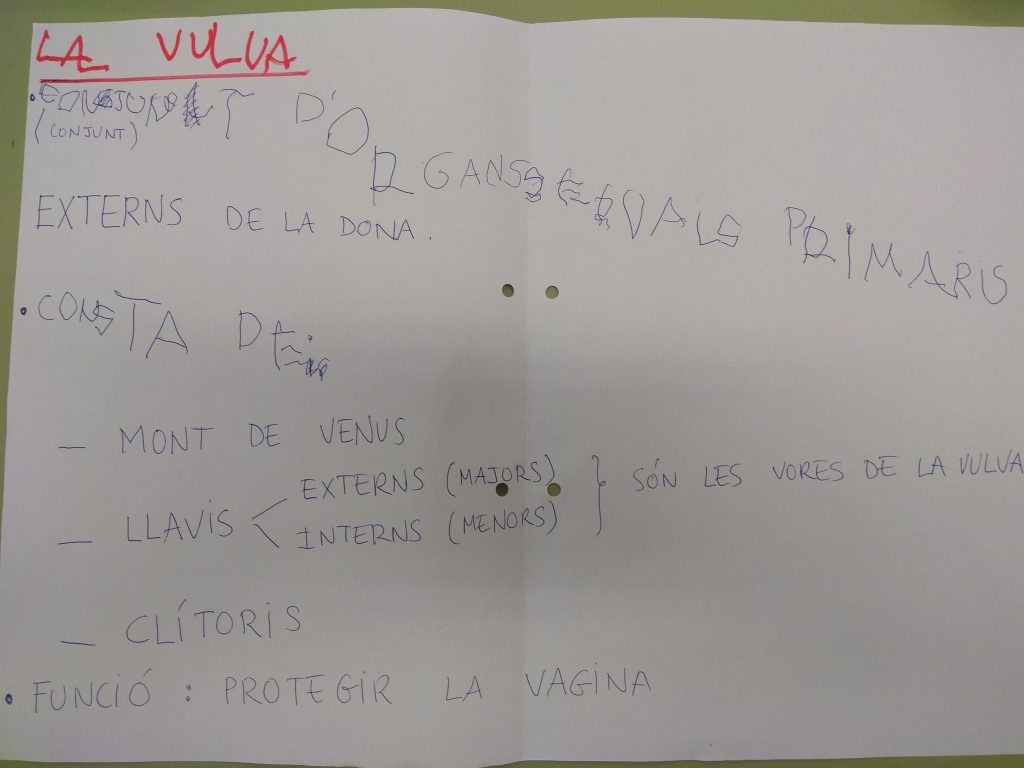 LA VULVA
• CONJUNT D'ORGANS SEXUALS PRIMARIS
(CONJUNT)
EXTERNS DE LA DONA.
• CONSTA DE:
— MONT DE VENUS
— LLAVIS EXTERNS (MAJORS) } SÓN LES VORES DE LA VULVA
INTERNS (MENORS)
— CLÍTORIS
• FUNCIÓ : PROTEGIR LA VAGINA